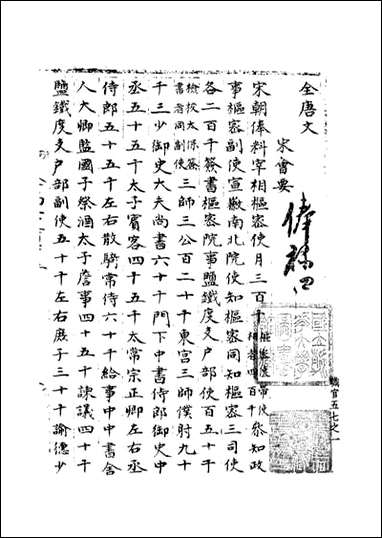 全唐文
宋會要
俸祿四
宋朝俸料宰相樞密使月三百千 樞密使帶使相者四百千 參知政
事樞密副使宣徽南北院使知樞密同知樞密三司使
各二百千簽書樞密院事鹽鐵度支戶部使百五十千
檢校太保簽書者同副使 三師三公百二十千東宮三師僕射九十
千三少御史大夫尚書六十千門下中書侍郎御史中
丞五十五千太子賓客四十五千太常宗正卿左右丞
侍郎五十五千左右散騎常侍六十千給事中中書舍
人大卿監國子祭酒太子詹事四十五千諫議四十千
鹽鐵度支戶部副使五十千左右庶子三十千諭德少
職官五七之一